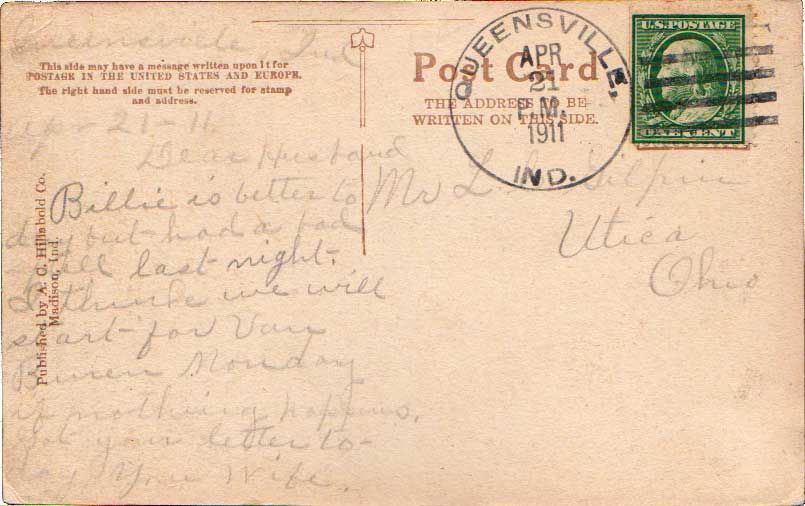 Queensville Ind
This side may have a message written upon it for
POSTAGE IN THE UNITED STATES AND EUROPE.
The right hand side must be reserved for stamp
and address.
Apr 21-11.
Dear Husband
Billie is better to
day but had a bad
spell last night.
I think we will
start for Van
Buren Monday
if nothing happens.
Got your letter to-
day. Your Wife.
Published by A. C. Hillabold Co.
Madison, Ind.
Post Card
THE ADDRESS TO BE
WRITTEN ON THIS SIDE.
QUEENSVILLE,
APR
21
P.M.
1911
IND.
U.S. POSTAGE
ONE CENT
Mr L. Gilpin
Utica
Ohio